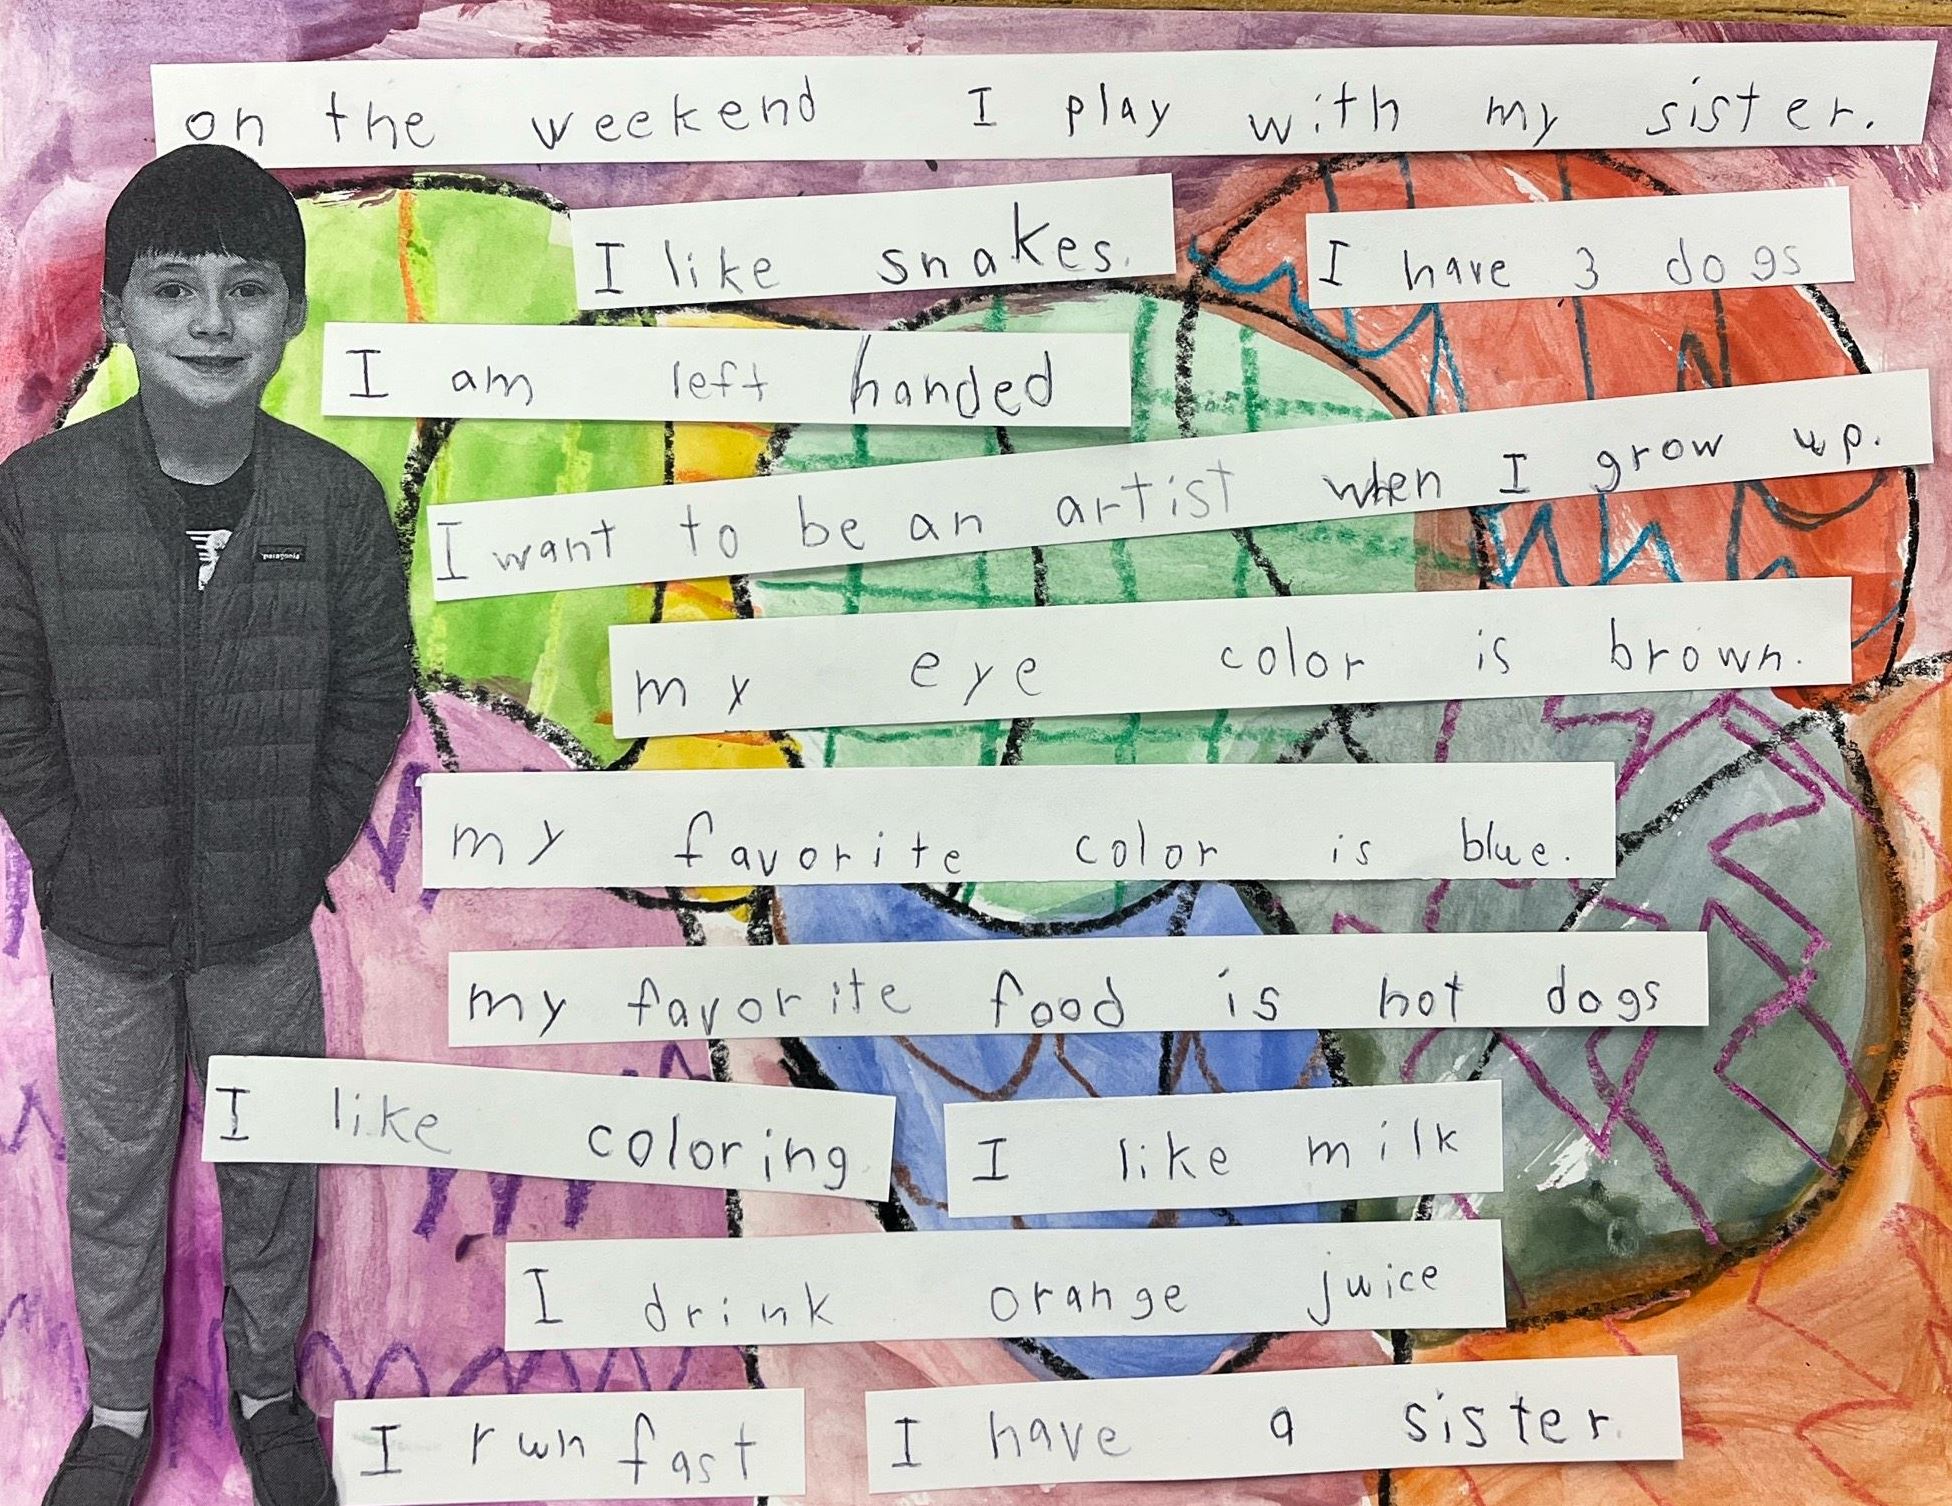 on the weekend I play with my sister.
I like snakes.
I have 3 dogs
I am left handed
I want to be an artist when I grow up.
my eye color is brown.
my favorite color is blue.
my favorite food is hot dogs
I like coloring
I like milk
I drink orange juice
I run fast
I have a sister.